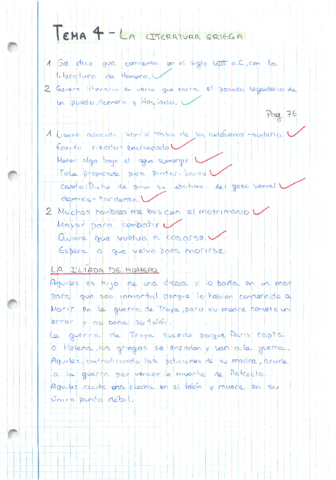 TEMA 4 - LA LITERATURA GRIEGA
1 Se dice que comienza en el siglo VIII a.C, con la
literatura de Homero.
2 Genero literario de verso que narra el pasado legendario de
un pueblo. Homero y Hesíodo.
Pag 76
1 Lienzo colocado sobre el rostro de los cadáveres-sudario
Forito rizado-encrespado
Meter algo bajo el agua sumergir
Tela preparada para pintar-lienzo
casta: Dicho de quien se abstiene del gozo sexual
damisel-doncella
2 Muchos hombres me buscan al matrimonio
Mayor para combatir
Quiere que vuelva a casarse.
Espera a que yelvo para morirse.
LA ILÍADA DE HOMERO
Aquiles es hijo de una diosa y lo baña en un mar
para que sea inmortal porque lo habían condenado a
Morir en la guerra de Troya, pero su madre comete un
error y no baña su talón.
La guerra de Troya sucede porque Paris rapta
a Helena, los griegos se enfadan y van a la guerra.
Aquiles, contradiciendo las peticiones de su madre, acude
a la guerra por vencer la muerte de Patroclo.
Aquiles recibe una flecha en el talón y muere en su
único punto débil.